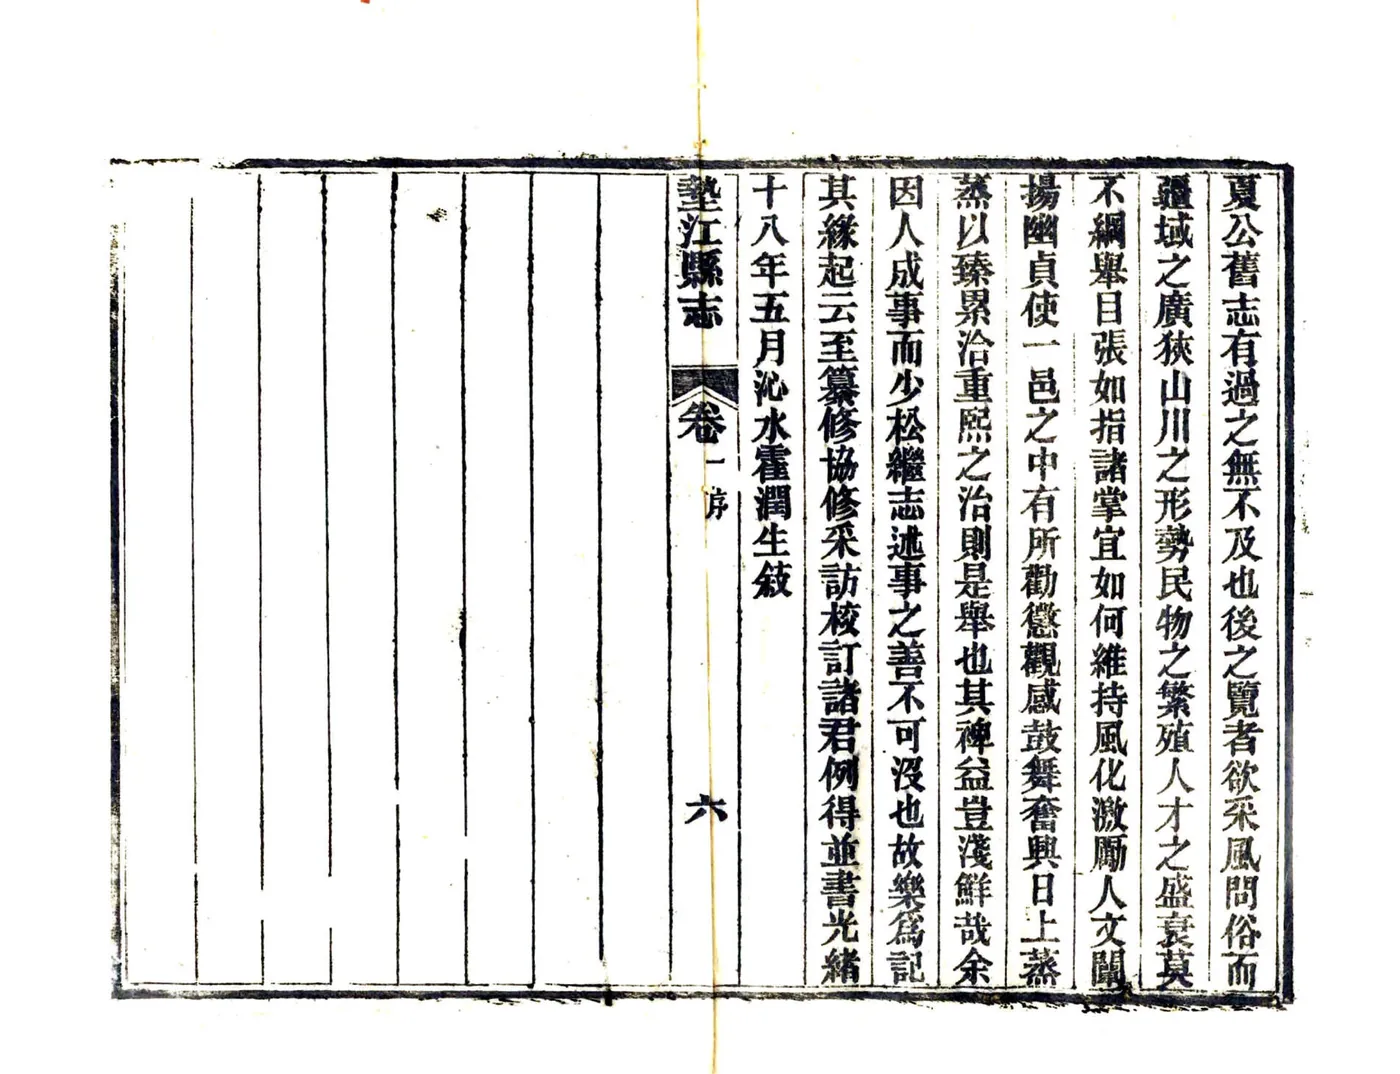 夏公舊志有過之無不及也後之覽者欲采風問俗而
疆域之廣狹山川之形勢民物之繁殖人才之盛衰莫
不綱舉目張如指諸掌宜如何維持風化激勵人文闡
揚幽貞使一邑之中有所勸懲觀感鼓舞奮興日上蒸
蒸以臻累洽重熙之治則是舉也其裨益豈淺鮮哉余
因人成事而少松繼志述事之善不可沒也故樂爲記
其緣起云至纂修協修采訪校訂諸君例得並書光緒
十八年五月沁水霍潤生敍
墊江縣志
卷一序
六